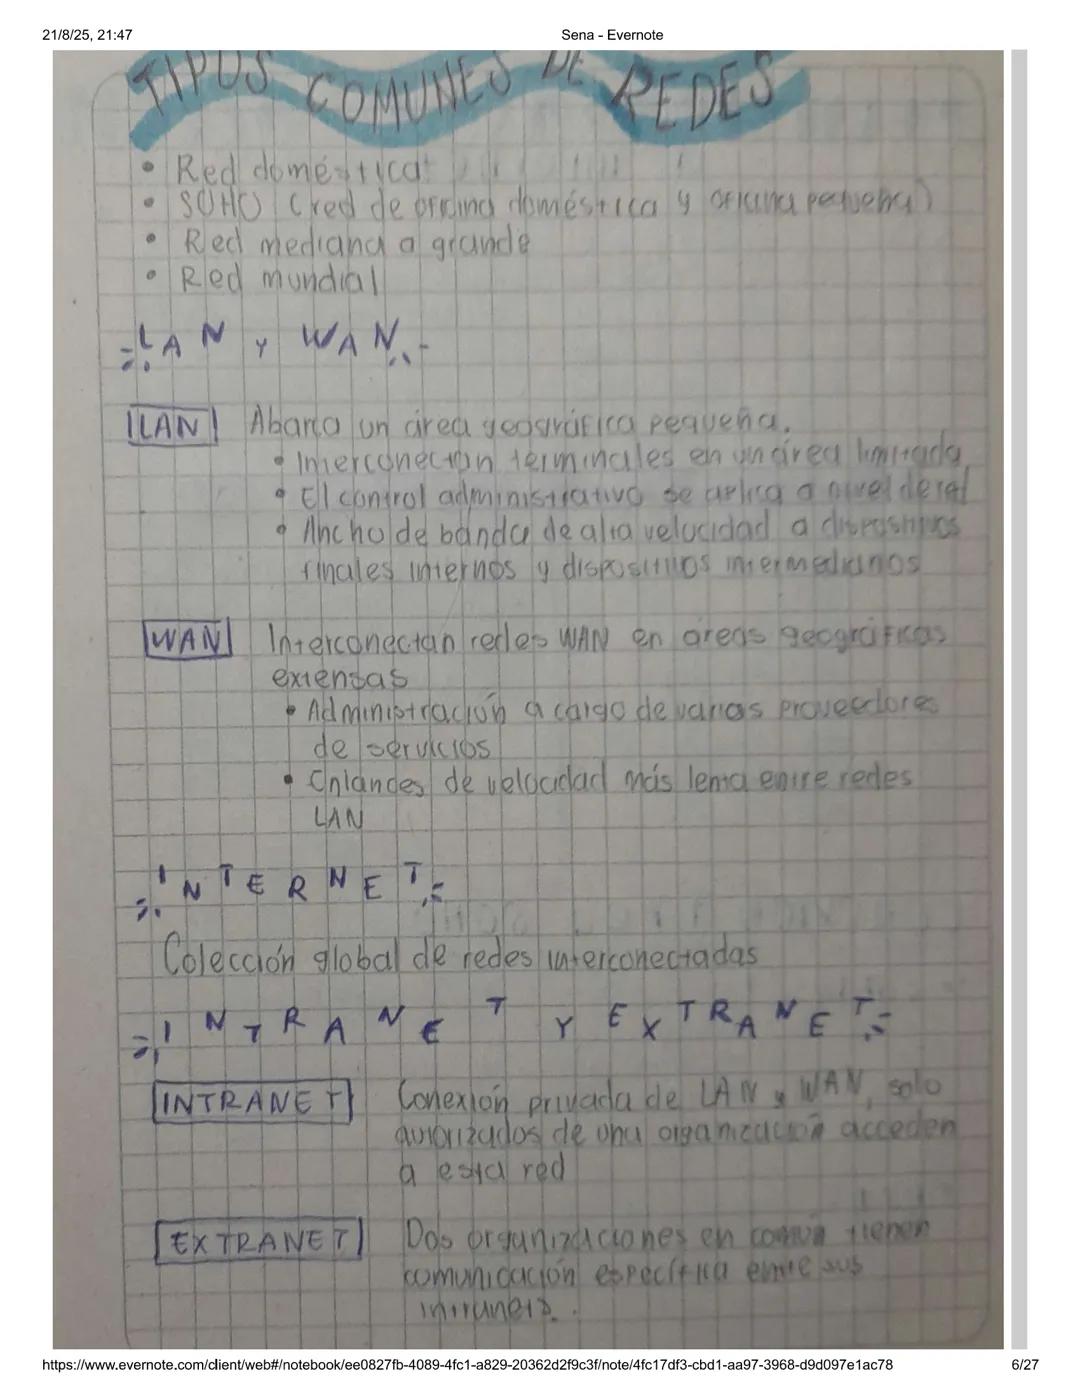 21/8/25, 21:47
Sena - Evernote
TIPOS COMUNES DE REDES
• Red doméstica
• SOHO (red de oficina doméstica y oficina pequeña)
• Red mediana a grande
• Red mundial
LAN Y WAN
LAN Abarca un área geográfica pequeña.
• Interconectan terminales en un área limitada
• El control administrativo se aplica a nivel de red
• Ancho de banda de alta velocidad a dispositivos
finales internos y dispositivos intermedianos
WAN Interconectan redes WAN en áreas geográficas
extensas
• Administración a cargo de varios proveedores
de servicios
• Enlances de velocidad más lenta entre redes
LAN
INTERNET
Colección global de redes interconectadas
INTRANET Y EXTRANET
INTRANET Conexión privada de LAN y WAN, solo
autorizados de una organización acceden
a esta red
EXTRANET Dos organizaciones en común tienen
comunicación específica entre sus
intranets.
https://www.evernote.com/client/web#/notebook/ee0827fb-4089-4fc1-a829-20362d2f9c3f/note/4fc17df3-cbd1-aa97-3968-d9d097e1ac78
6/27